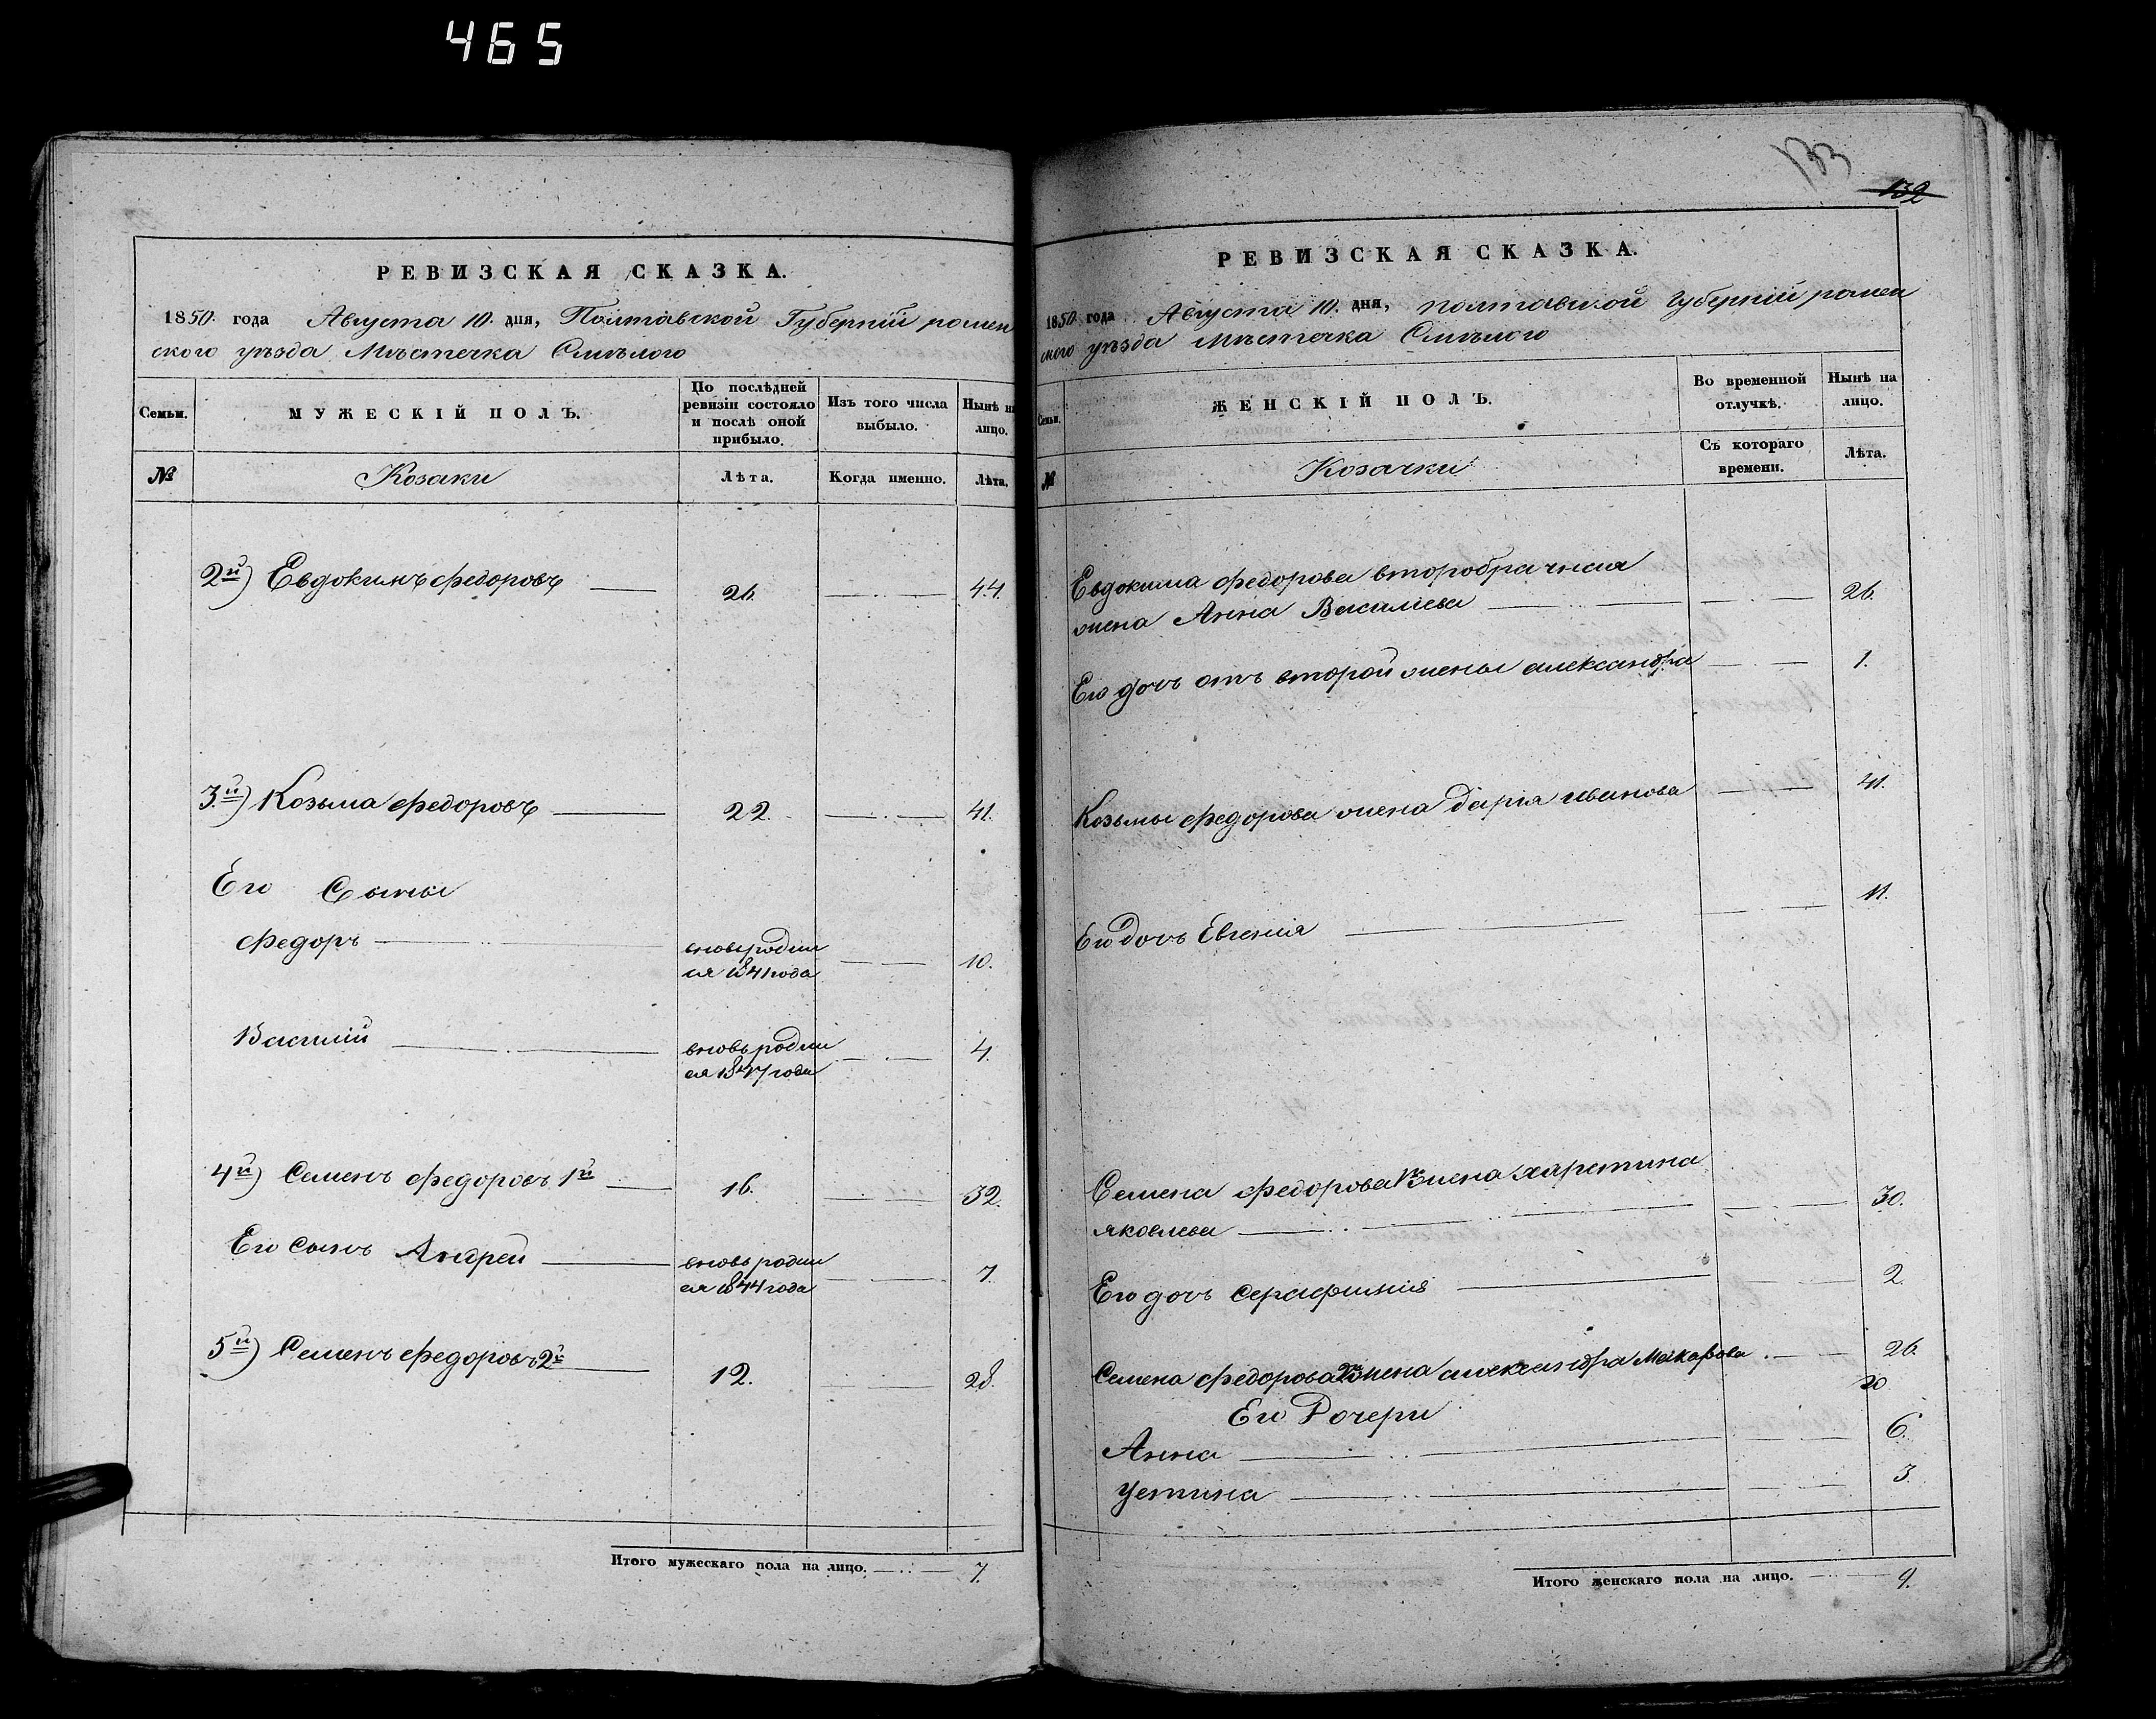 465
РЕВИЗСКАЯ СКАЗКА.
1850. года Августа 10. дня, Полтавской Губерніи ромен
ского уѣзда Мѣстечка Смѣлого
Семьи.
МУЖЕСКІЙ ПОЛЪ.
По послѣдней ревизіи состояло и послѣ оной прибыло.
Изъ того числа выбыло.
Нынѣ на лицо.
№
Козаки
Лѣта.
Когда именно.
Лѣта.
2й) Евдокимъ федоровъ 26. 44.
3.й) Козьма федоровъ 22. 41.
Его Сыны
федоръ вновь родил 10.
ся 1841 года
Василій вновь родил 4.
ся 1847 года
4й) Семенъ федоровъ 1й 16. 32.
Его сынъ Андрей вновь родил 7.
ся 1844 года
5й) Семенъ федоровъ 2й 12. 28.
Итого мужескаго пола на лицо. 7.
133
132
РЕВИЗСКАЯ СКАЗКА.
1850 года Августа 10. дня, полтавской губерніи ромен
ского уѣзда мѣстечка Смѣлого
Семьи.
ЖЕНСКІЙ ПОЛЪ.
Во временной отлучкѣ.
Нынѣ на лицо.
№
Козачки
Съ котораго времени.
Лѣта.
Евдокима федорова второбрачная
жена Анна Василіева 26.
Его дочь отъ второй жены александра 1.
Козьмы федорова жена дарія иванова 41.
Его дочь Евгенія 11.
Семена федорова 1го жена харетина
яковлева 30.
Его дочь серафимія 2.
Семена федорова 2го жена александра Макарова 26.
20
Его Дочери
Анна 6.
устина 3.
Итого женскаго пола на лицо. 9.